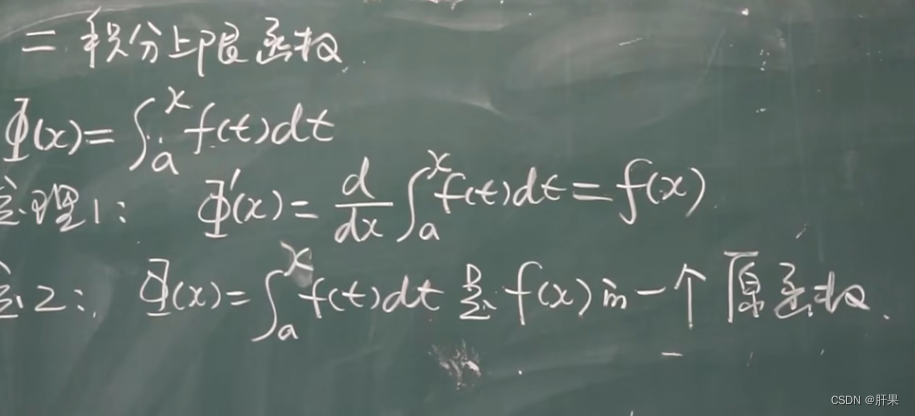 二 积分上限函数
Φ(x)=∫ₐˣf(t)dt
定理1: Φ'(x)=d/dx∫ₐˣf(t)dt=f(x)
定2: Φ(x)=∫ₐˣf(t)dt是f(x)的一个原函数.
CSDN @肝果